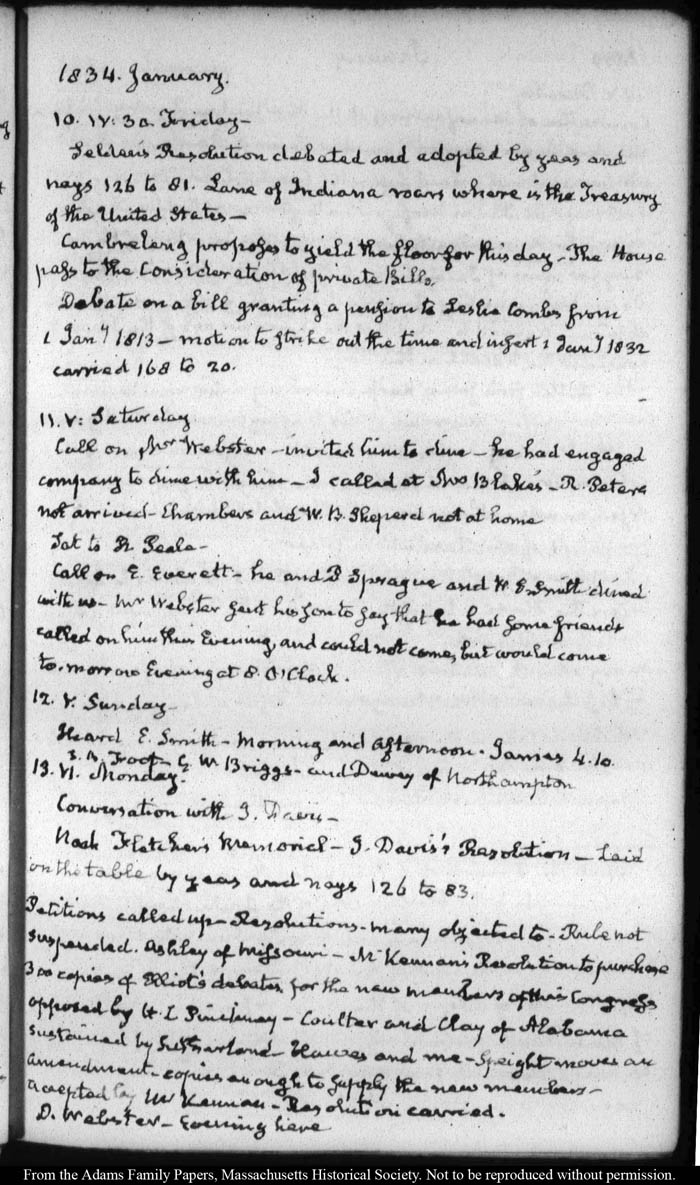 1834. January.
10. IV: 30. Friday-
Selden's Resolution debated and adopted by yeas and
nays 126 to 81. Lane of Indiana roars where is the Treasury
of the United States-
Cambreleng proposes to yield the floor for this day - The House
pass to the Consideration of private Bills.
Debate on a bill granting a pension to Leslie Combs from
1 Jany 1813 - motion to strike out the time and insert 1 Jany 1832
carried 168 to 20.
11. V: Saturday
Call on Mr Webster - invited him to dine - he had engaged
company to dine with him - I called at Blake's - R. Peters
not arrived - Chambers and W. B. Sheperd not at home
Sat to R. Peale-
Call on E. Everett - he and P Sprague and E Smith dined
with us - Mr Webster sent his son to say that he had some friends
called on him this Evening, and could not come, but would come
to-morrow Evening at 8. O'Clock.
12. V. Sunday-
Heard E. Smith - Morning and afternoon. James 4.10.
Foot - G. W Briggs - and Dewey of Northampton
13. VI. Monday.
Conversation with J. Davis-
Noah Fletcher's Memorial - J. Davis's Resolution - Laid
on the table by yeas and nays 126 to 83.
Petitions called up - Resolutions - many objected to - Rule not
suspended. Ashley of Missouri - McKennan's Resolution to purchase
300 copies of Elliot's debates, for the new members of this Congress
opposed by H. L Pinckney - Coulter and Clay of Alabama
sustained by Sutherland - Hawes and me - Speight moves an
amendment - copies enough to supply the new members-
accepted by McKennan - Resolution carried.
D. Webster - Evening here
From the Adams Family Papers, Massachusetts Historical Society. Not to be reproduced without permission.